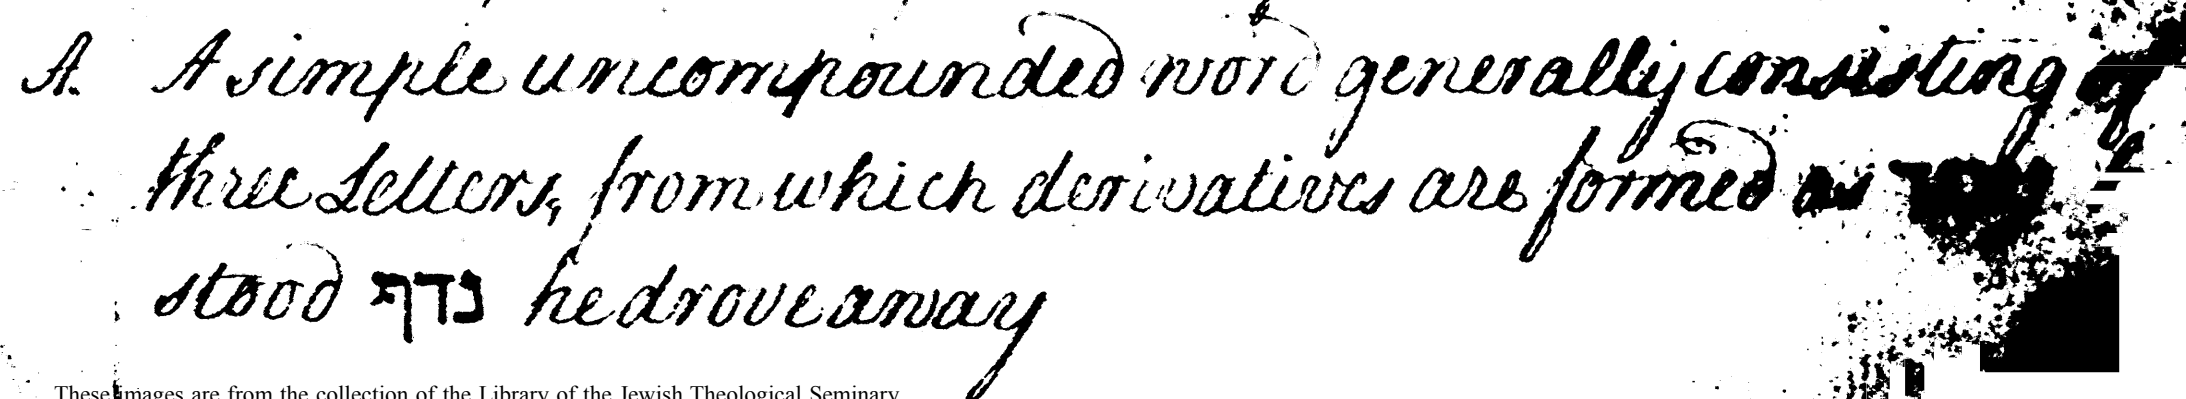 A. A simple uncompounded word generally consisting of
three Letters, from which derivatives are formed as
stood נדף he drove away
These images are from the collection of the Library of the Jewish Theological Seminary